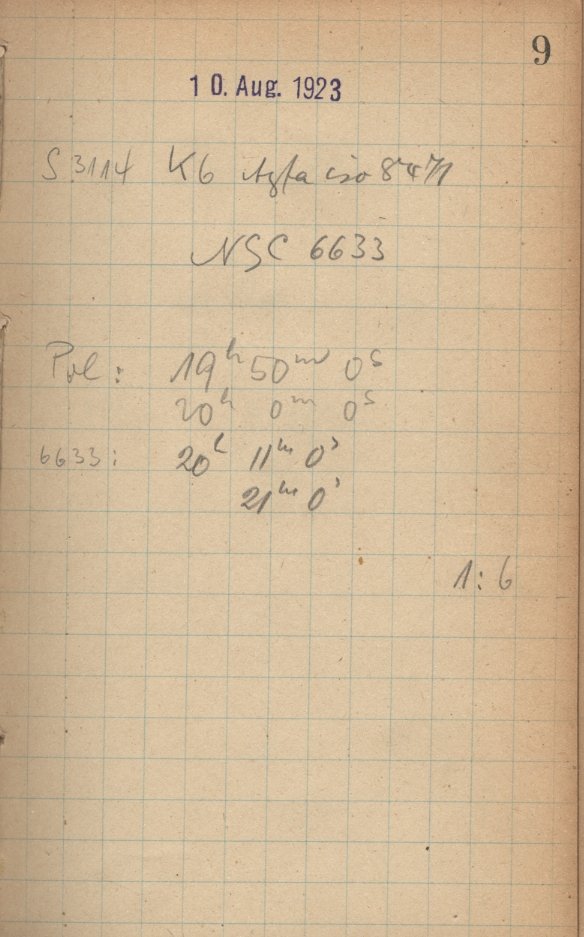 9
10. Aug. 1923
S 3114 K6 Agfa iso
NGC 6633
Pol: 19h 50m 0s
20h 0m 0s
6633: 20h 11m 0s
21m 0s
1:6